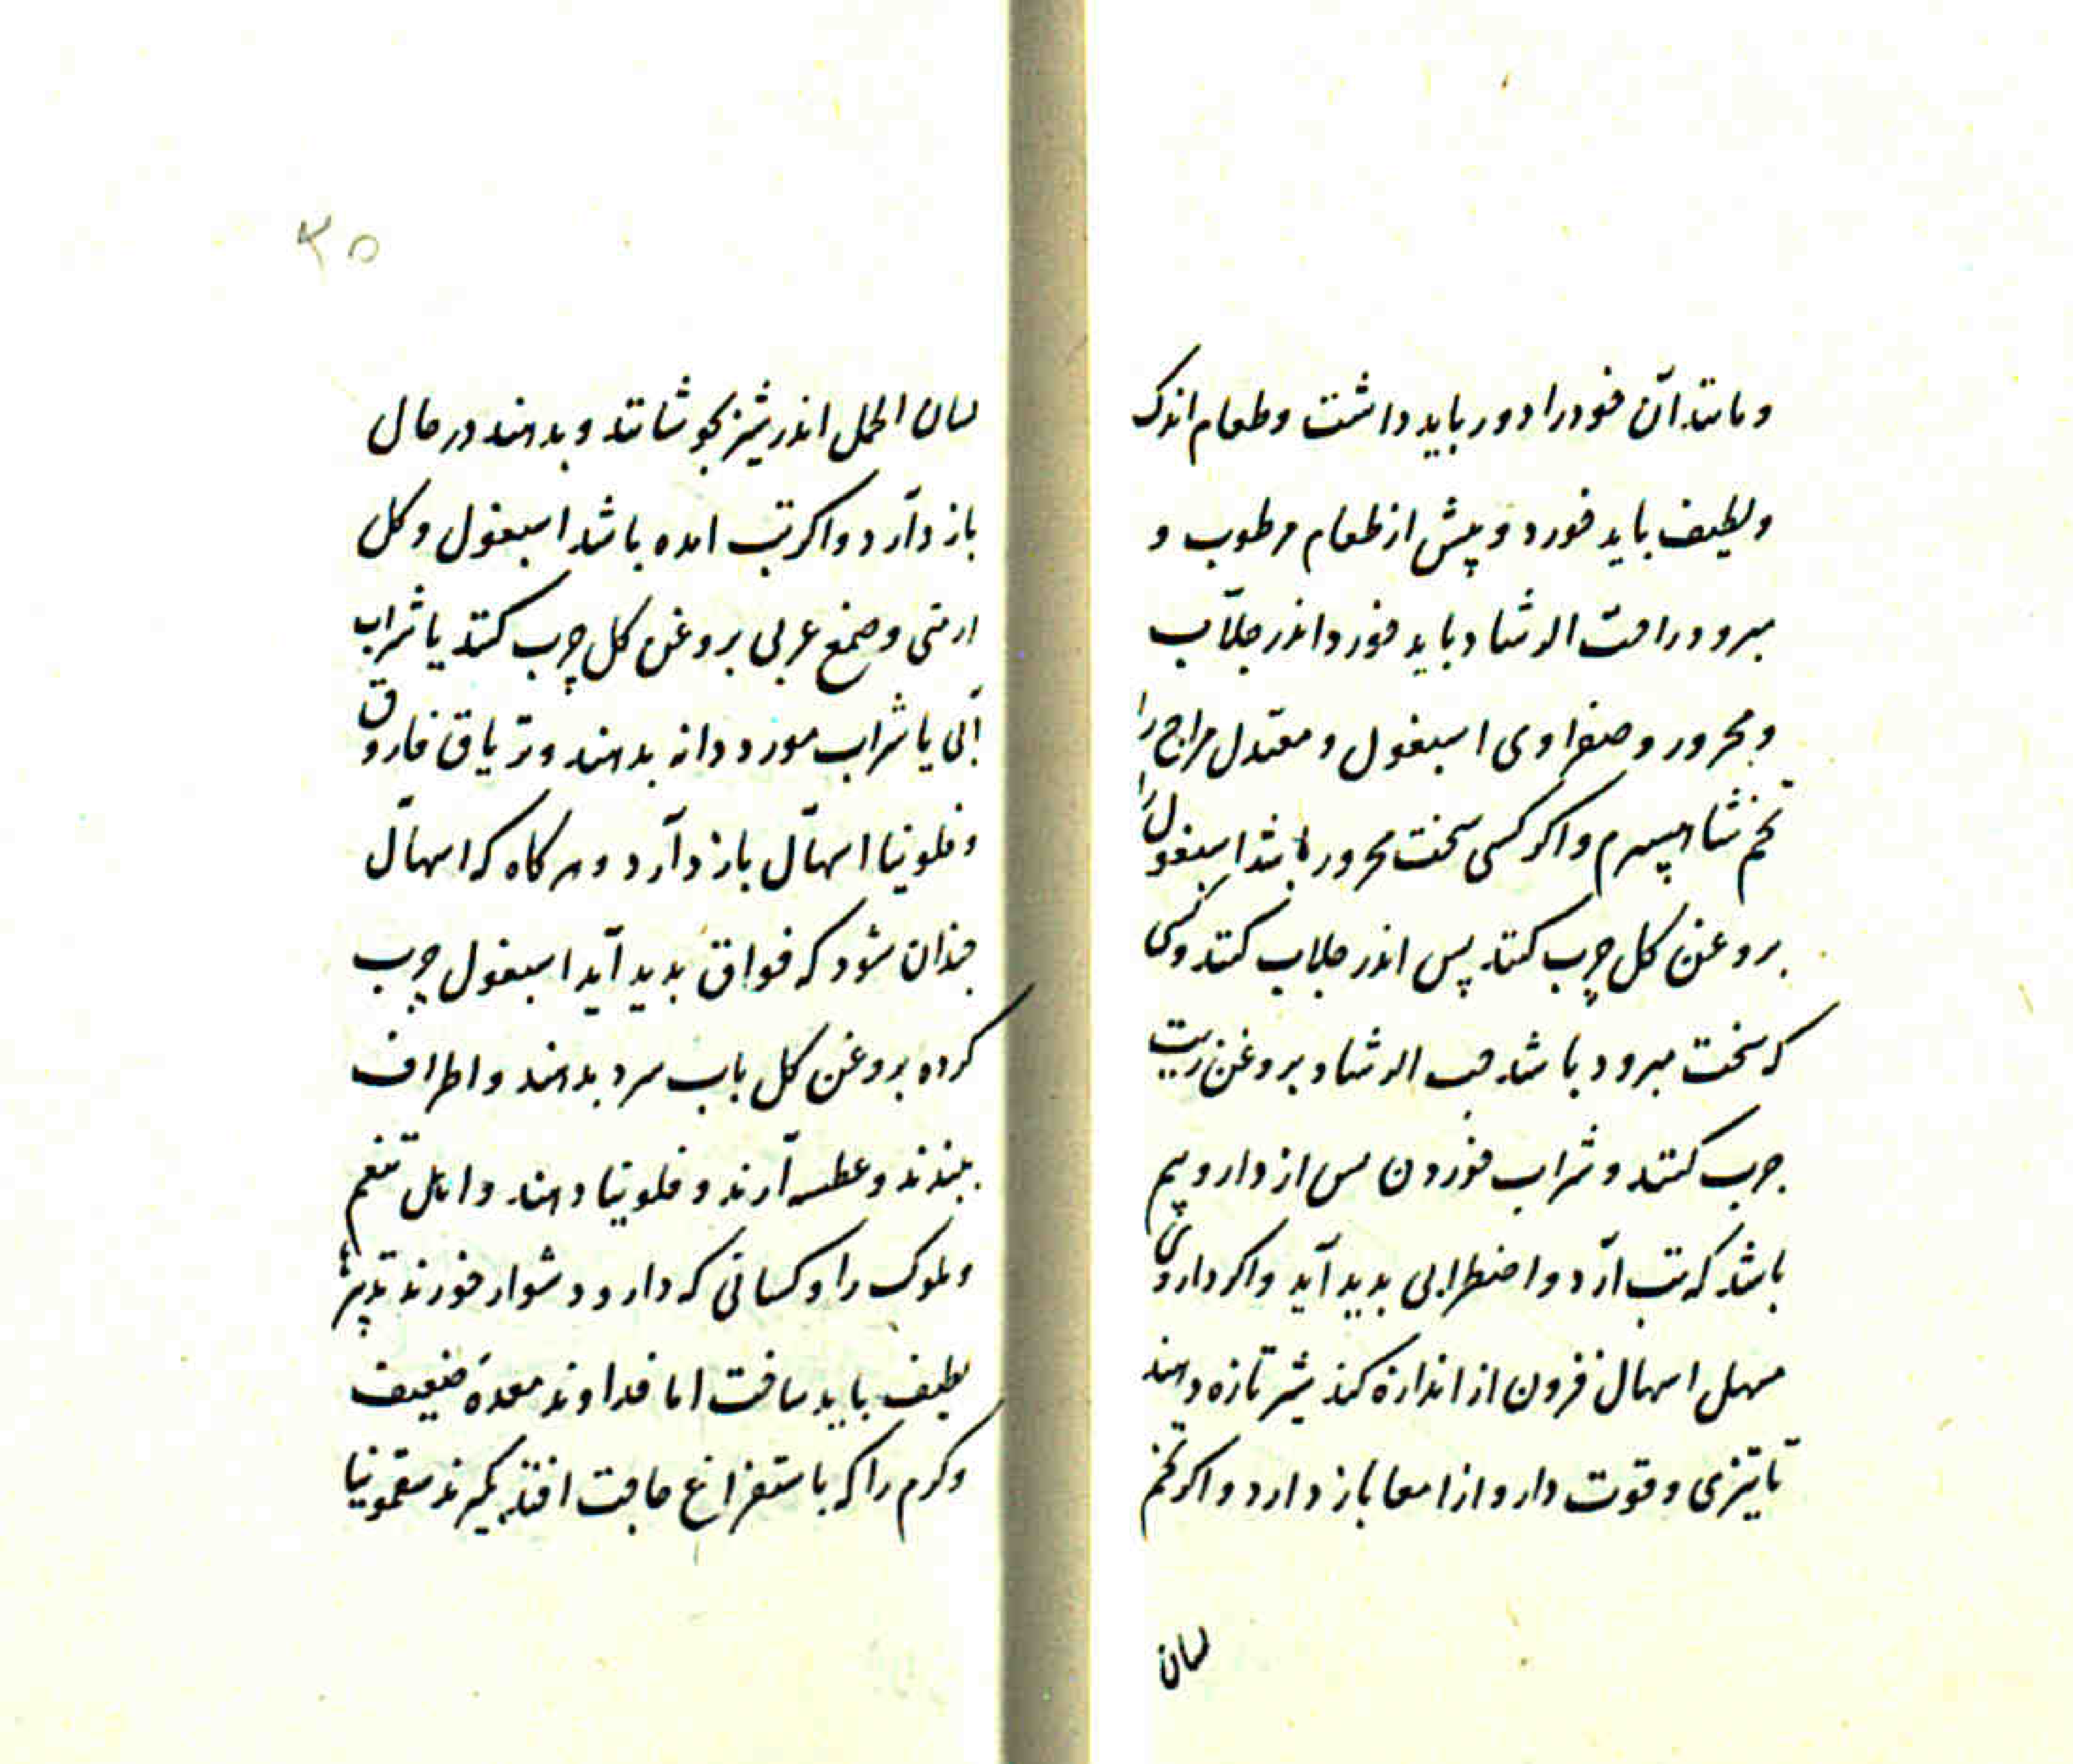 و مانند آن خود را دور باید داشت و طعام اندک
و لطیف باید خورد و پیش از طعام مرطوب و
مبرود را حب الرشاد باید خورد اندر جلاّب
و محرور و صفراوی اسبغول و معتدل مزاج را
تخم شاهسپرم و اکر کسی سخت محرور باشد اسبغول را
بروغن کل چرب کنند پس اندر جلاب کنند و کسی
که سخت مبرود باشد حب الرشاد بروغن زیت
چرب کنند و شراب خوردن پس از دارو بیم
باشد که تب آرد و اضطرابی بدید آید و اکر داروی
مسهل اسهال فزون از اندازه کند شیر تازه دهند
تا تیزی و قوت دارو از امعا باز دارد و اکر تخم
لسان
۳۵
لسان الحمل اندر شیر بجوشانند و بدهند در حال
باز دآرد و اکر تب امده باشد اسبغول و کل
ارمنی و صمغ عربی بروغن کل چرب کنند یا شراب
آبی یا شراب مورد دانه بدهند و تریاق فاروق
و فلونیا اسهال باز دآرد و هر کاه که اسهال
چندان شود که فواق بدید آید اسبغول چرب
کرده بروغن کل باب سرد بدهند و اطراف
ببندند و عطسه آرند و فلونیا دهند و اهل تنعم
و ملوک را و کسانی که دارو دشوار خورند تدبیرها
لطیف باید ساخت اما خداوند معدهٔ ضعیف
و کرم را که باستفراغ حاجت افتد بکیرند سقمونیا